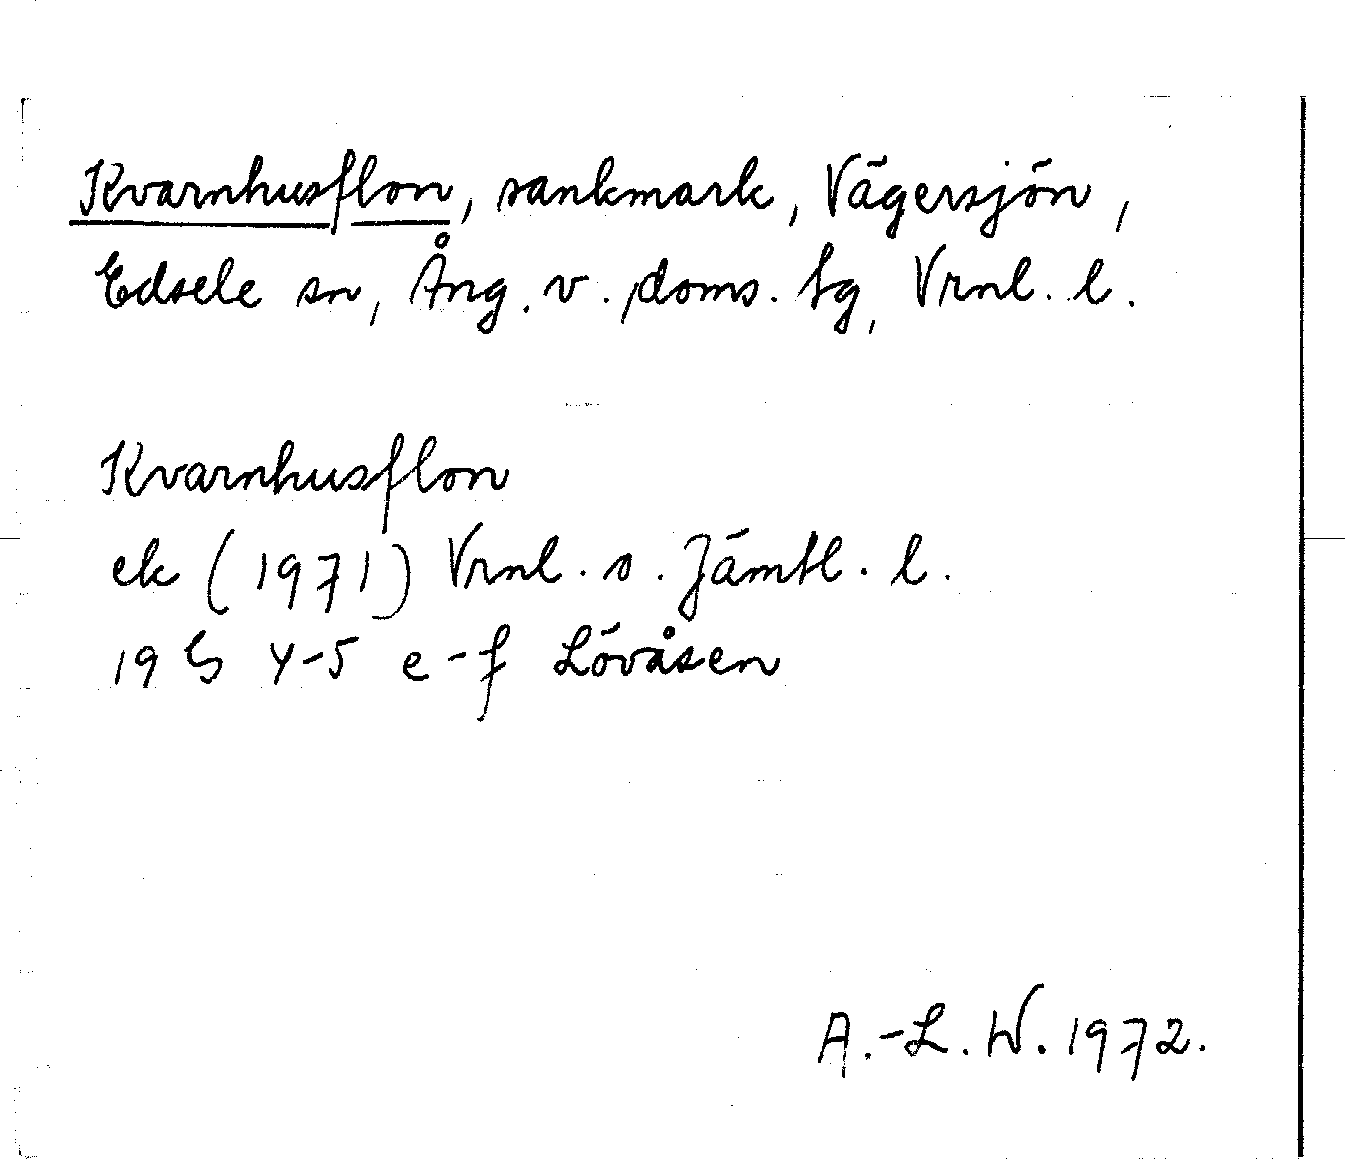 Kvarnhusflon, sankmark, Vägersjön,
Edsele sn, Ång. v. doms. tg, Vrnl. l.
Kvarnhusflon
ek (1971) Vrnl. o. Jämtl. l.
19 G 4-5 e-f Lövåsen
A.-L. W. 1972.